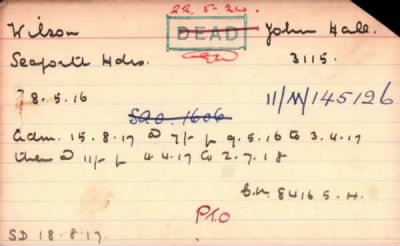 22.5.24.
Wilson DEAD John Hall.
Seaforth Hdrs. 3115.
8.5.16 11/M/145126
SAO. 1606
Adm. 15.8.17 @ 7/- f 9.5.16 to 3.4.17
then @ 11/- f 4.4.17 to 2.7.18
8416 S.H.
PTO
SD 18.8.17.